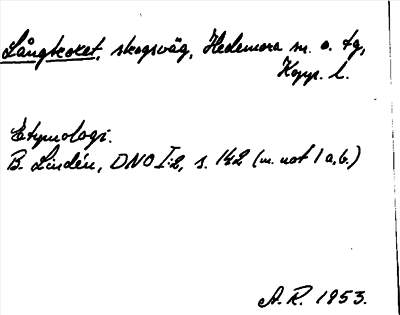 Långkoket, skogsväg, Hedemora sn. o. tg,
Kopp. l.
Etymologi.
B. Lindén, DNO I:2, s. 142 (m. not 1 a, b.)
A. R. 1953.